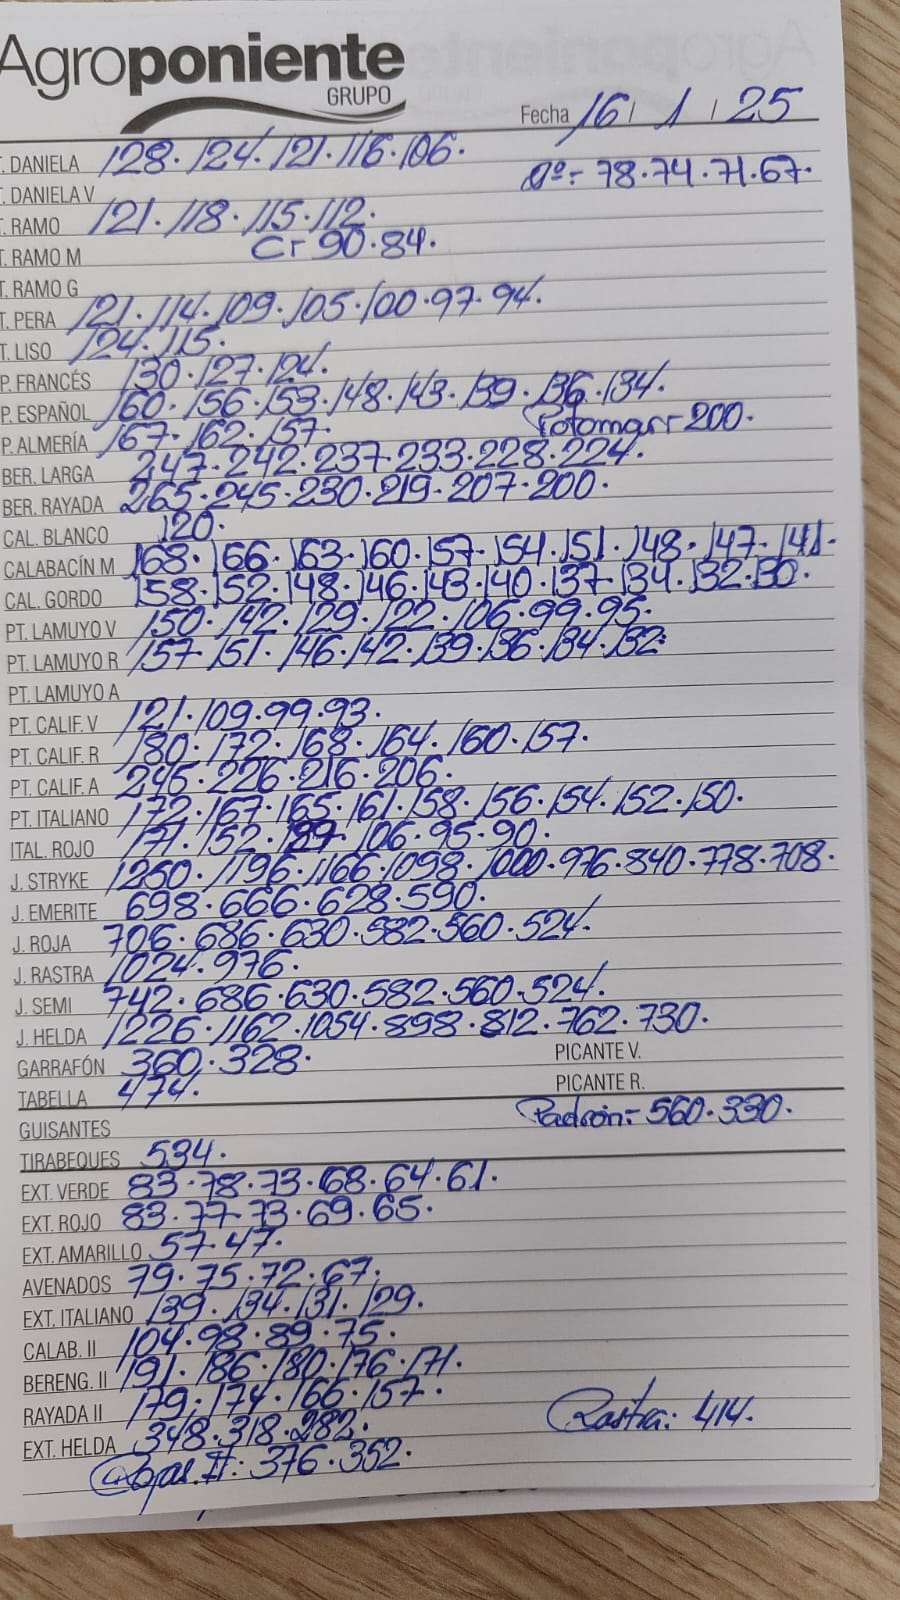 Agroponiente
GRUPO
Fecha 16 / 1 / 25
T. DANIELA 128. 124. 121. 116. 106.
T. DANELA V 2º:- 78.74.71.67.
T. RAMO 121. 118. 115. 112.
T. RAMO M Cr 90.84.
T. RAMO G
T. PERA 121. 114. 109. 105. 100. 97. 94.
T. LISO 124. 115.
P. FRANCÉS 130. 127. 124.
P. ESPAÑOL 160. 156. 153. 148. 143. 139. 136. 134.
P. ALMERÍA 167. 162. 157. 200.
BER. LARGA 247. 242. 237. 233. 228. 224.
BER. RAYADA 265. 245. 230. 219. 207. 200.
CAL. BLANCO 120.
CALABACÍN M 168. 166. 163. 160. 157. 154. 151. 148. 147. 141.
CAL. GORDO 158. 152. 148. 146. 143. 140. 137. 134. 132. 130.
PT. LAMUYO V 150. 142. 129. 122. 106. 99. 95.
PT. LAMUYO R 157. 151. 146. 142. 139. 136. 134. 132.
PT. LAMUYO A
PT. CALIF. V 121. 109. 99. 93.
PT. CALIF. R 180. 172. 168. 164. 160. 157.
PT. CALIF. A 245. 226. 216. 206.
PT. ITALIANO 172. 167. 165. 161. 158. 156. 154. 152. 150.
ITAL. ROJO 171. 152. 127. 106. 95. 90.
J. STRYKE 1250. 1196. 1166. 1098. 1000. 976. 840. 778. 708.
J. EMERITE 698. 666. 628. 590.
J. ROJA 706. 686. 630. 582. 560. 524.
J. RASTRA 1024. 976.
J. SEMI 742. 686. 630. 582. 560. 524.
J. HELDA 1226. 1162. 1054. 898. 812. 762. 730.
GARRAFÓN 360. 328. PICANTE V.
TABELLA 474. PICANTE R.
GUISANTES Padrón:- 560. 330.
TIRABEQUES 534.
EXT. VERDE 83. 78. 73. 68. 64. 61.
EXT. ROJO 83. 77. 73. 69. 65.
EXT. AMARILLO 57. 47.
AVENADOS 79. 75. 72. 67.
EXT. ITALIANO 139. 134. 131. 129.
CALAB. II 104. 98. 89. 75.
BERENG. II 191. 186. 180. 176. 171.
RAYADA II 179. 174. 166. 157.
EXT. HELDA 348. 318. 282. Rastra: 414.
II: 376. 352.